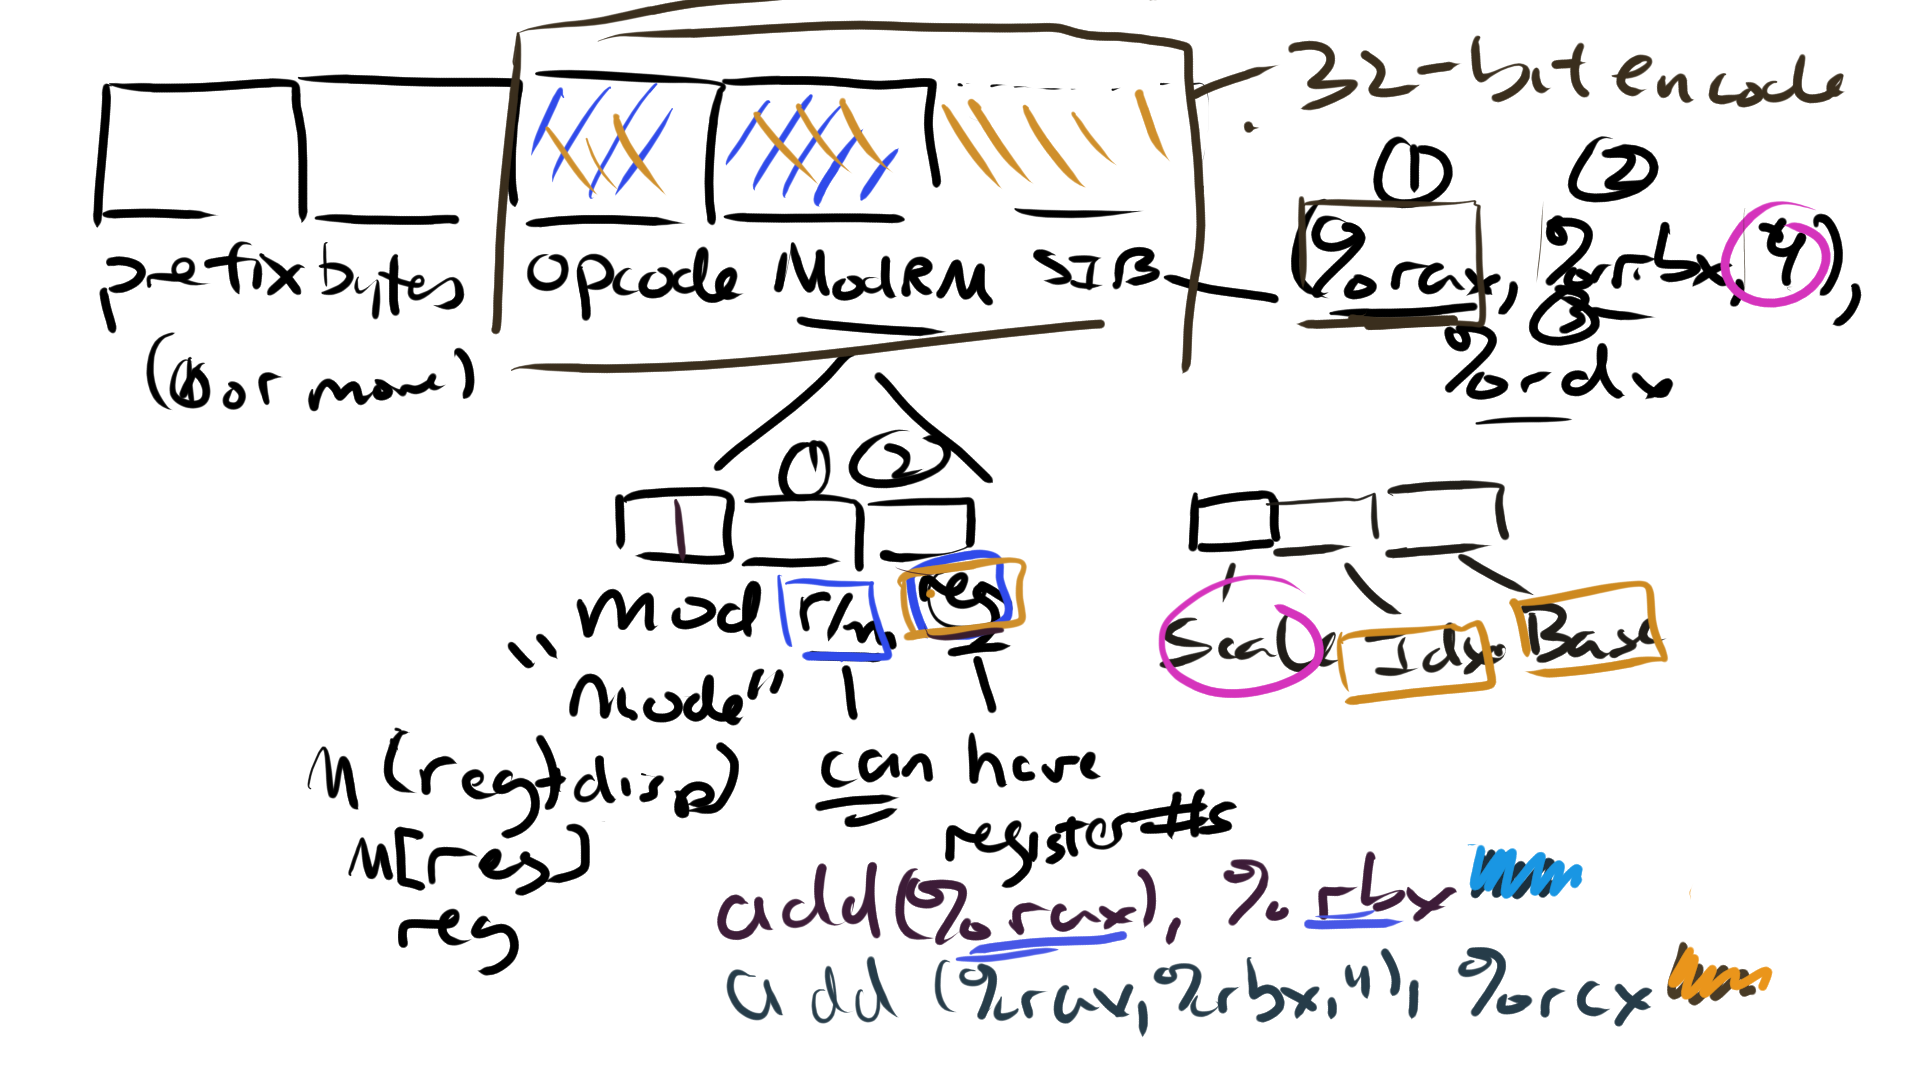 32-bit encode
① ②
prefix bytes opcode ModRM SIB (%rax, %rbx, 4),
③
(0 or more) %rdx
① ②
mod r/m reg
Scale Idx Base
"mode"
M(reg+disp) can have
register #s
M[reg]
add (%rax), %rbx
reg
add (%rax, %rbx, 4), %rcx